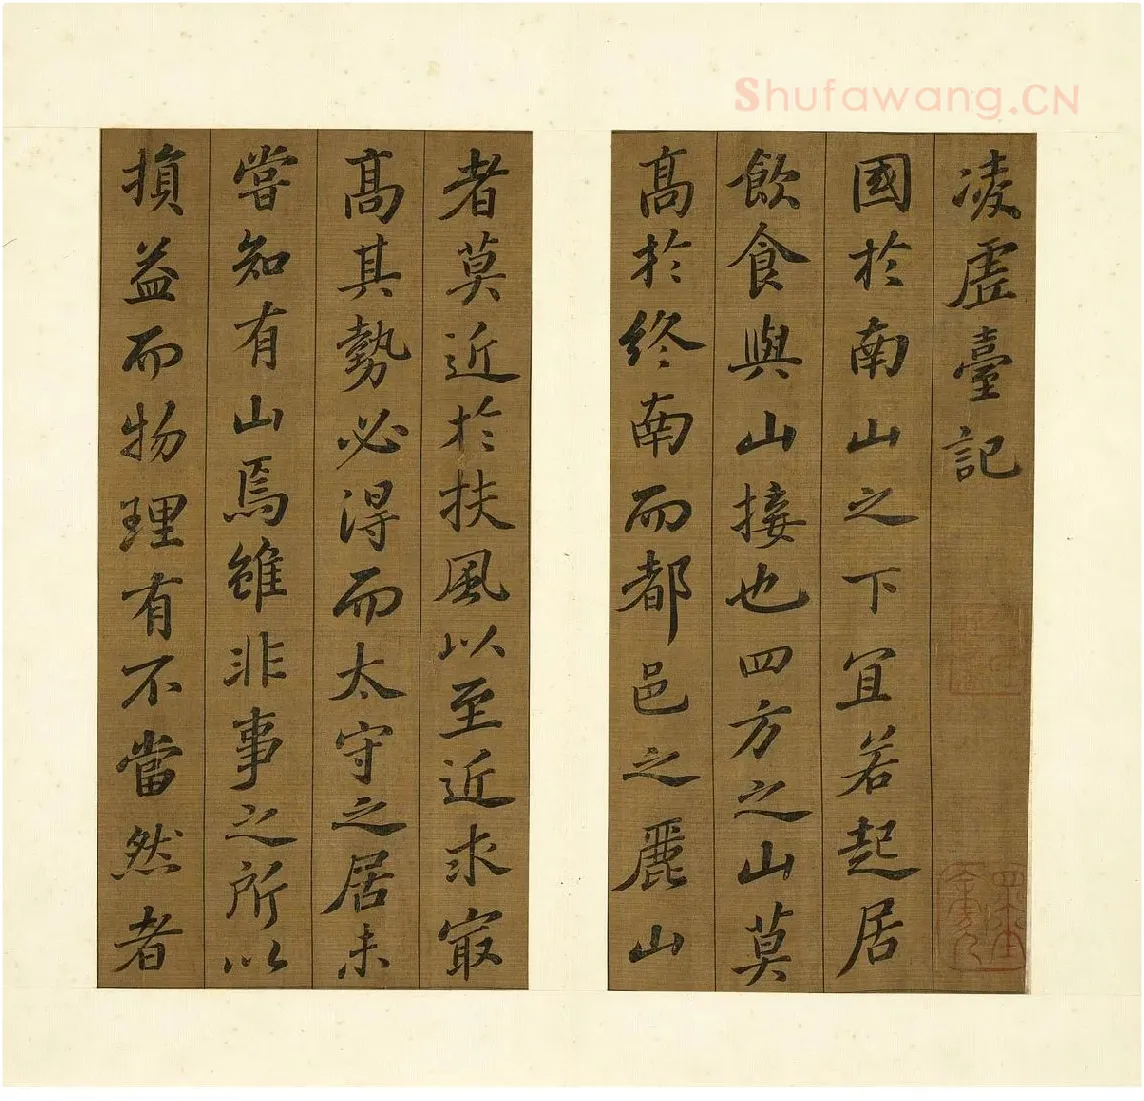 Shufawang.CN
凌虛臺記
國於南山之下宜若起居
飲食與山接也四方之山莫
高於終南而都邑之麗山
者莫近於扶風以至近求冣
高其勢必得而太守之居未
嘗知有山焉雖非事之所以
損益而物理有不當然者